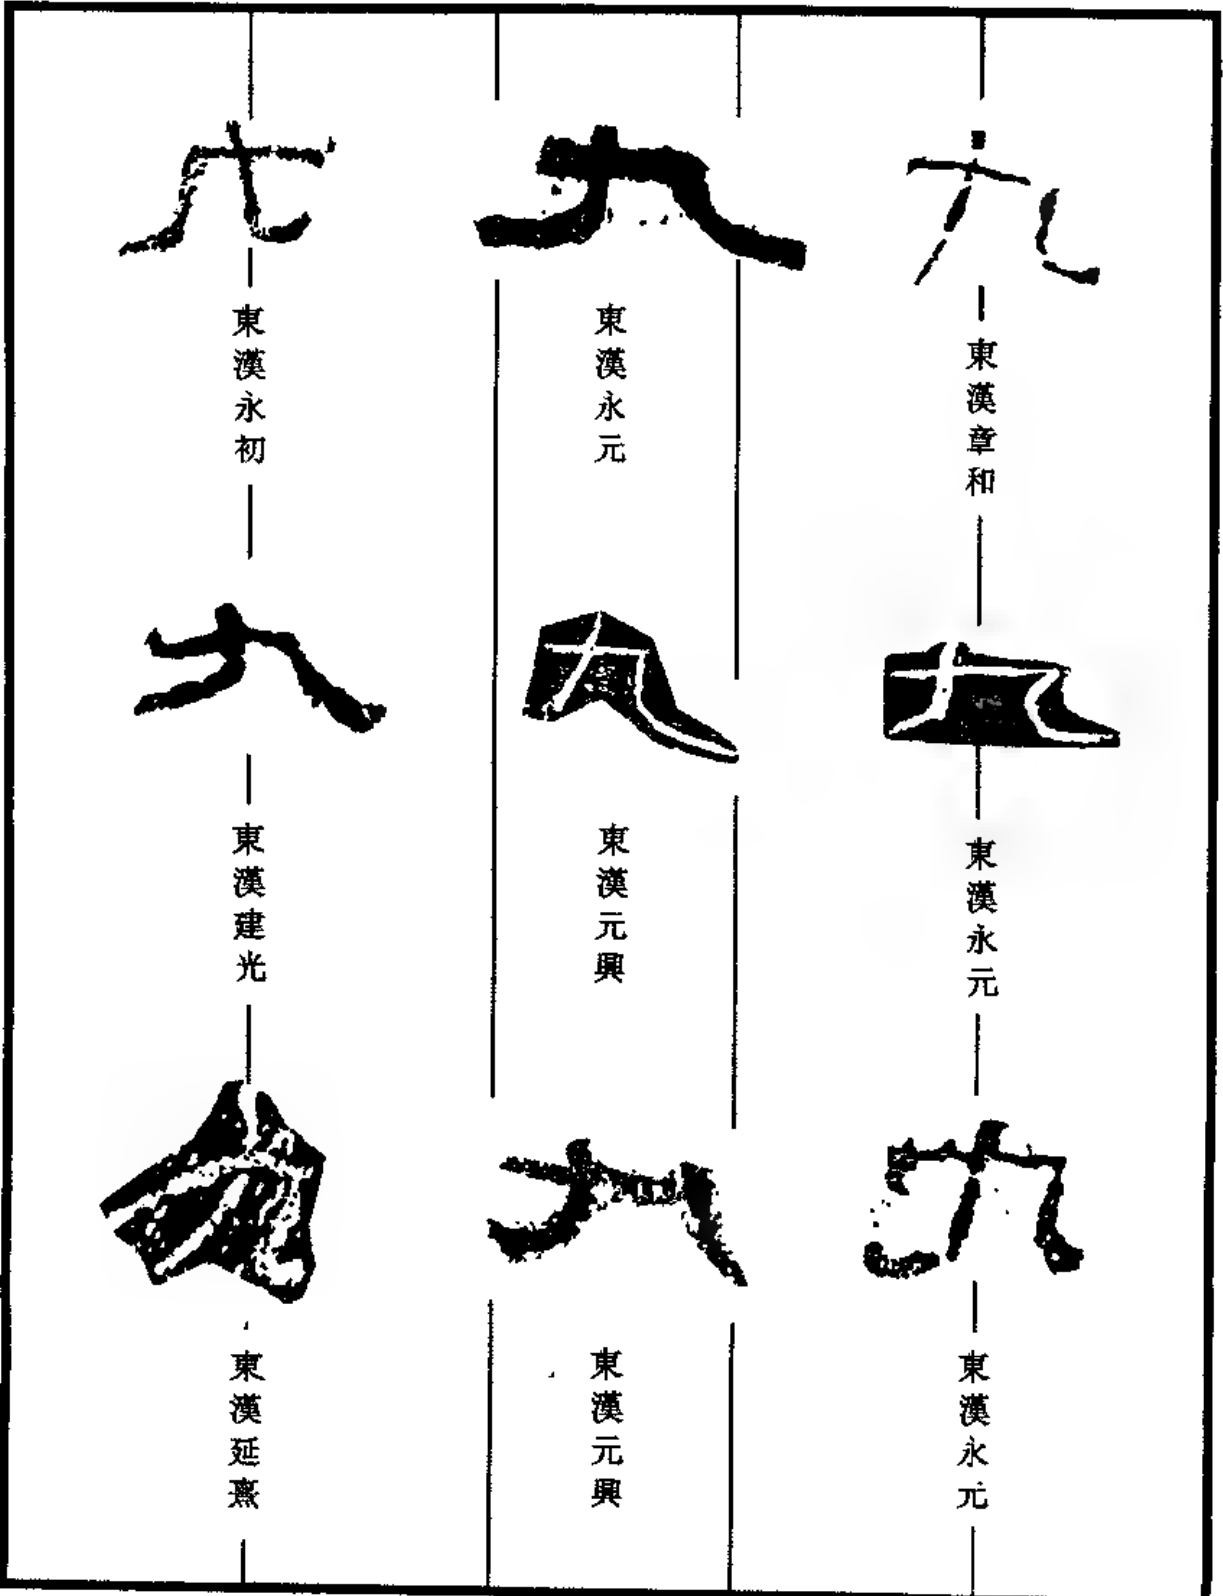 九
東漢章和
九
東漢永元
九
東漢永元
九
東漢永元
九
東漢元興
九
東漢元興
九
東漢永初
九
東漢建光
九
東漢延熹